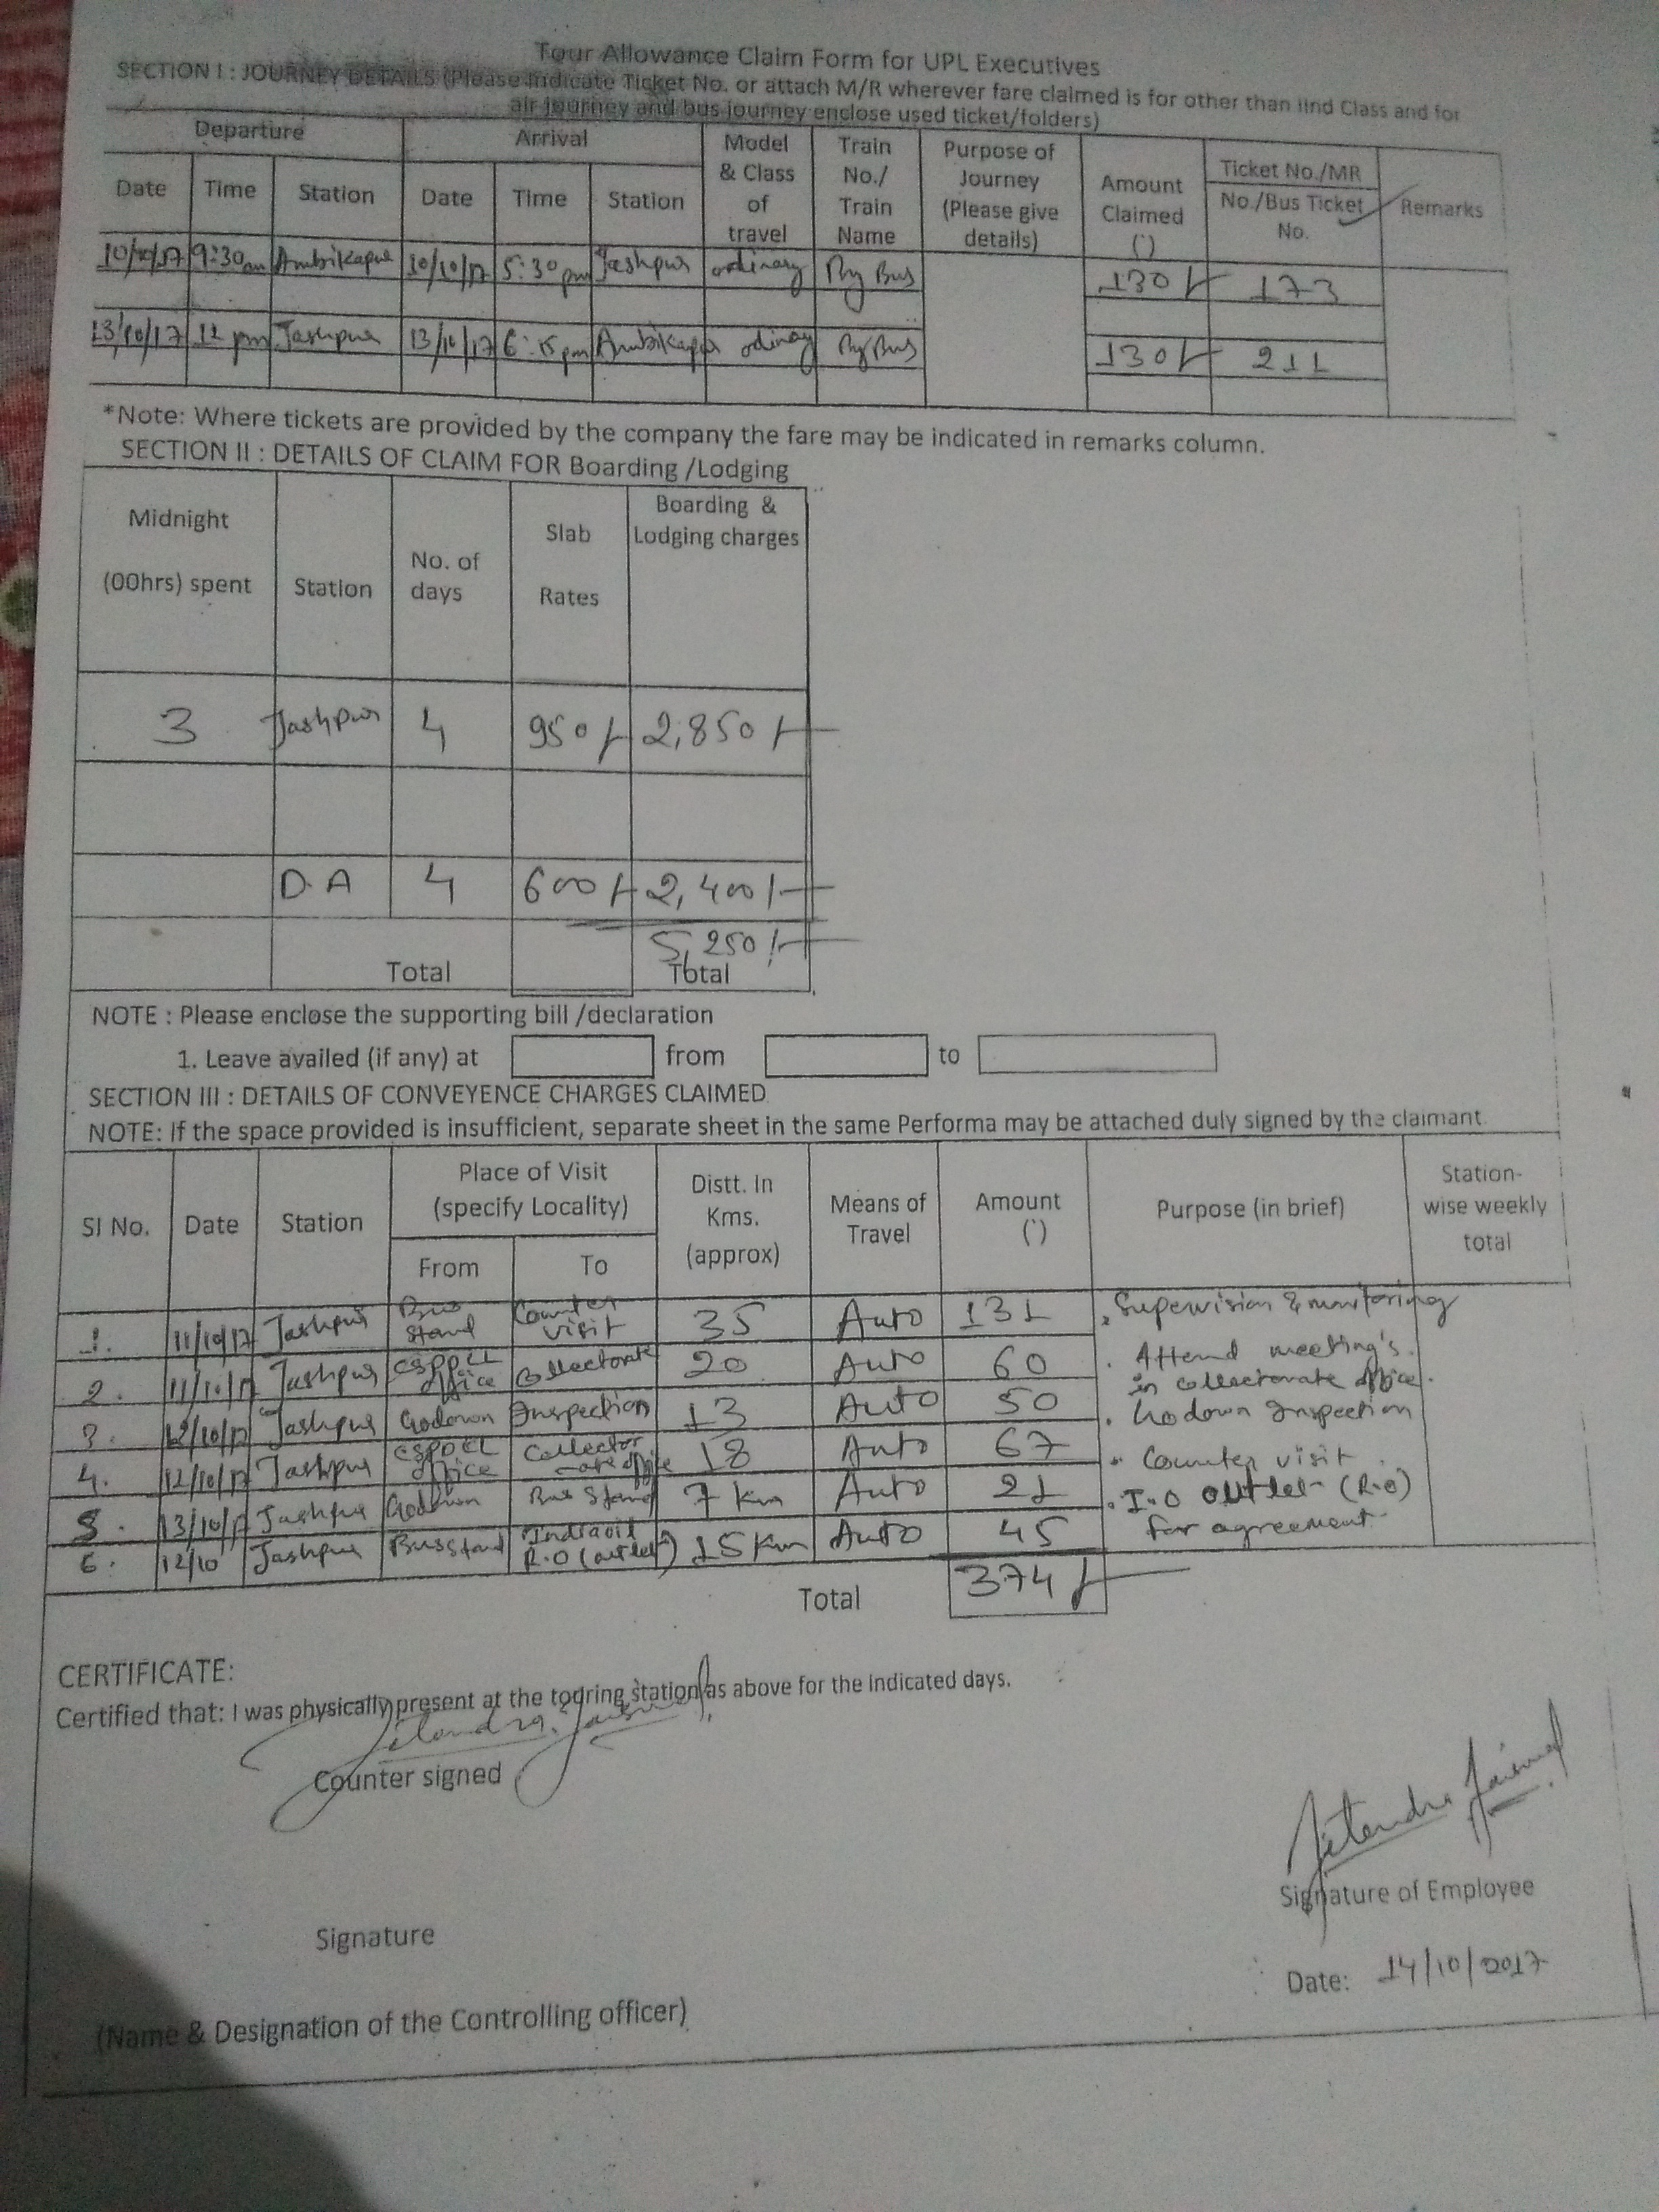 Tour Allowance Claim Form for UPL Executives
SECTION I : JOURNEY DETAILS (Please Indicate Ticket No. or attach M/R wherever fare claimed is for other than IInd Class and for
air journey and bus journey enclose used ticket/folders)
Departure Arrival Model & Class of travel Train No./ Train Name Purpose of Journey (Please give details) Amount Claimed (`) Ticket No./MR No./Bus Ticket No. Remarks
Date Time Station Date Time Station
10/10/17 9:30am Ambikapur 10/10/17 5:30 pm Jashpur ordinary By Bus 130/- 173
13/10/17 12 pm Jashpur 13/10/17 6:15pm Ambikapur odinay By Bus 130/- 211
*Note: Where tickets are provided by the company the fare may be indicated in remarks column.
SECTION II : DETAILS OF CLAIM FOR Boarding /Lodging
Midnight (00hrs) spent Station No. of days Slab Rates Boarding & Lodging charges
3 Jashpur 4 950/- 2,850/-
D.A 4 600/- 2,400/-
5,250/-
Total Total
NOTE : Please enclose the supporting bill /declaration
1. Leave availed (if any) at from to
SECTION III : DETAILS OF CONVEYENCE CHARGES CLAIMED
NOTE: If the space provided is insufficient, separate sheet in the same Performa may be attached duly signed by the claimant
SI No. Date Station Place of Visit (specify Locality) Distt. In Kms. (approx) Means of Travel Amount (`) Purpose (in brief) Station-wise weekly total
From To
1. 11/10/17 Jashpur Bus stand Counter visit 35 Auto 131 . Supervision & monitoring
2. 11/10/17 Jashpur CSPDCL office Collectorate 20 Auto 60 . Attend meeting's in collectorate office.
3. 12/10/17 Jashpur Godown Inspection 13 Auto 50 . Godown Inspection
4. 12/10/17 Jashpur CSPDCL office Collectorate office 18 Auto 67 . Counter visit
5. 13/10/17 Jashpur Godown Bus Stand 7 Km Auto 21 . I.O outlet (R.O)
6. 12/10 Jashpur Bus stand R.O (outlet) 15 Km Auto 45 for agreement
Total 374/-
CERTIFICATE:
Certified that: I was physically present at the touring station as above for the indicated days.
Jitendra Jaiswal
Counter signed
Jitendra Jaiswal
Signature of Employee
Signature
Date: 14/10/2017
(Name & Designation of the Controlling officer)